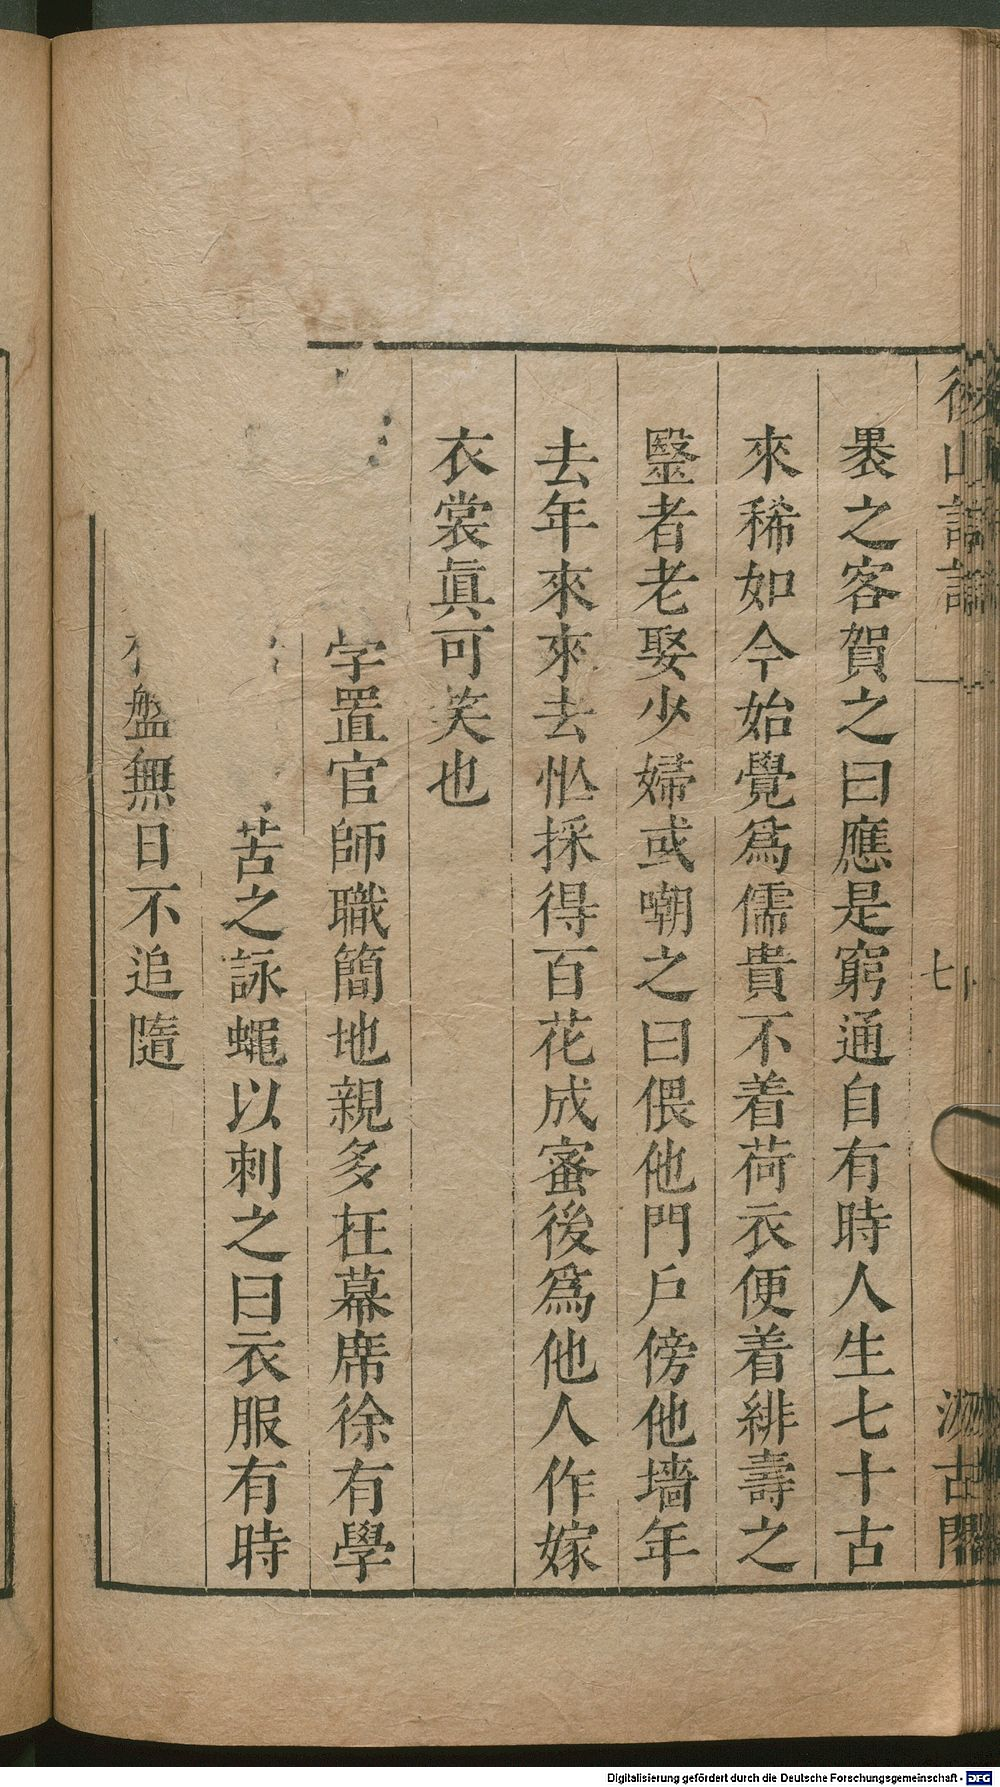 後山詩話
七
汲古閣
褁之客賀之曰應是窮通自有時人生七十古
來稀如今始覺爲儒貴不着荷衣便着緋壽之
毉者老娶少婦或嘲之曰偎他門戶傍他墻年
去年來來去忙採得百花成蜜後爲他人作嫁
衣裳眞可笑也
字置官師職簡地親多在幕席徐有學
苦之詠蠅以刺之曰衣服有時
盤無日不追隨
Digitalisierung gefördert durch die Deutsche Forschungsgemeinschaft - DFG